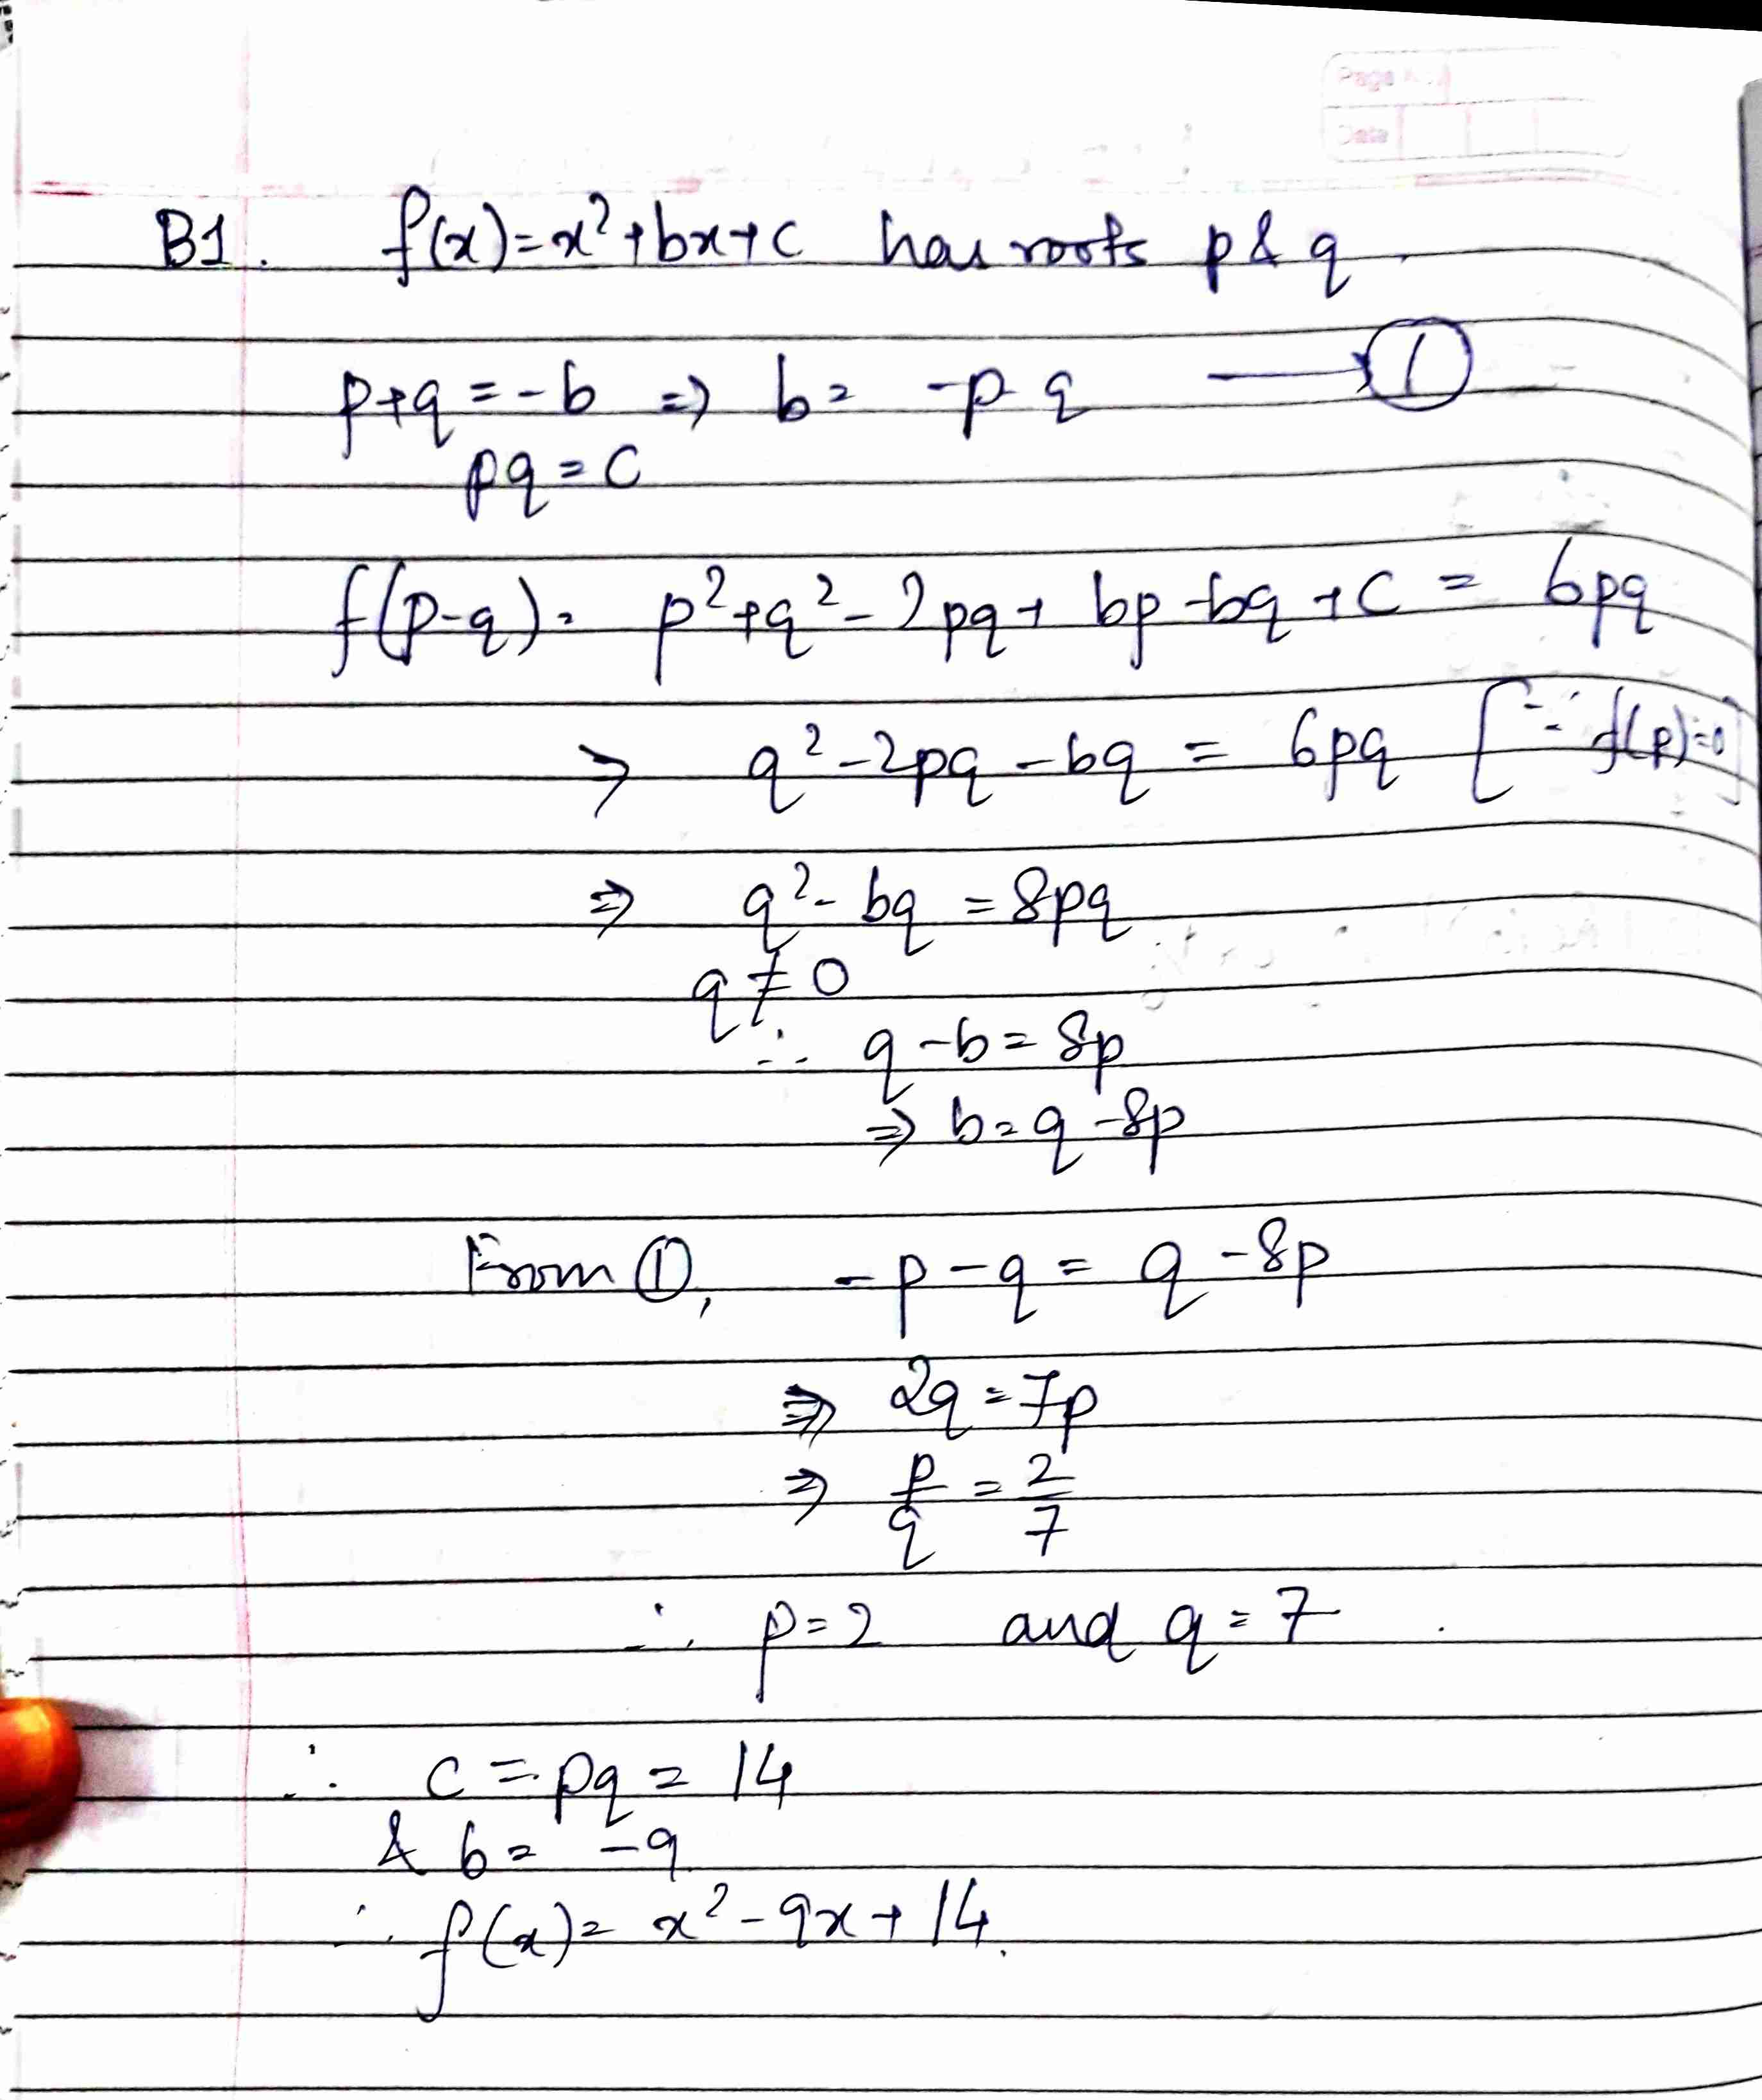 Page
Date
B1. f(x)=x²+bx+c has roots p & q.
p+q=-b ⇒ b= -p-q → ①
pq=c
f(p-q)= p²+q²-2pq+bp-bq+c = 6pq
⇒ q²-2pq-bq = 6pq [∵ f(p)=0]
⇒ q²-bq=8pq
q≠0
∴ q-b=8p
⇒ b=q-8p
From ①, -p-q= q-8p
⇒ 2q=7p
⇒ p/q = 2/7
∴ p=2 and q=7.
∴ c=pq=14
& b= -9
∴ f(x)= x²-9x+14.